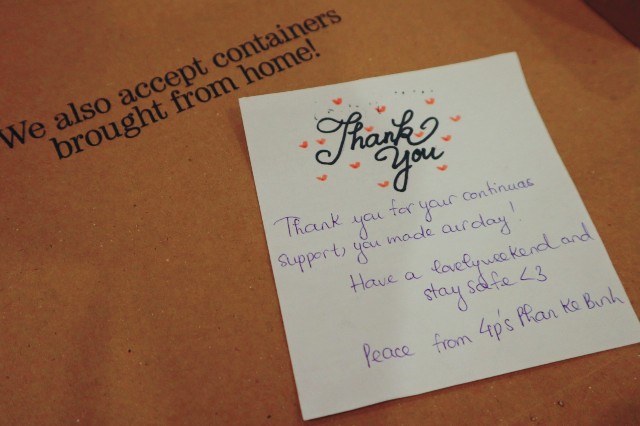 We also accept containers
brought from home!
Thank
You
Thank you for your continuas
support, you made our day!
Have a lovely weekend and
stay safe <3
Peace from 4p's Phan Ke Binh